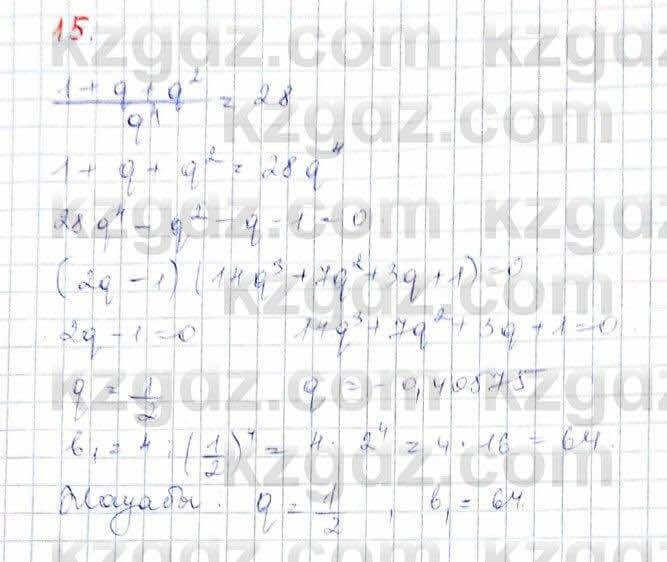 15.
(1+q+q²)/q⁴ = 28
1+q+q² = 28q⁴
28q⁴-q²-q-1=0
(2q-1)(14q³+7q²+3q+1)=0
2q-1=0 14q³+7q²+3q+1=0
q = 1/2 q = -0,40575
b₁ = 4 : (1/2)⁴ = 4 · 2⁴ = 4 · 16 = 64.
Жауабы: q = 1/2, b₁ = 64
kzgdz.com
kzgdz.com
kzgdz.com
kzgdz.com
kzgdz.com
kzgdz.com